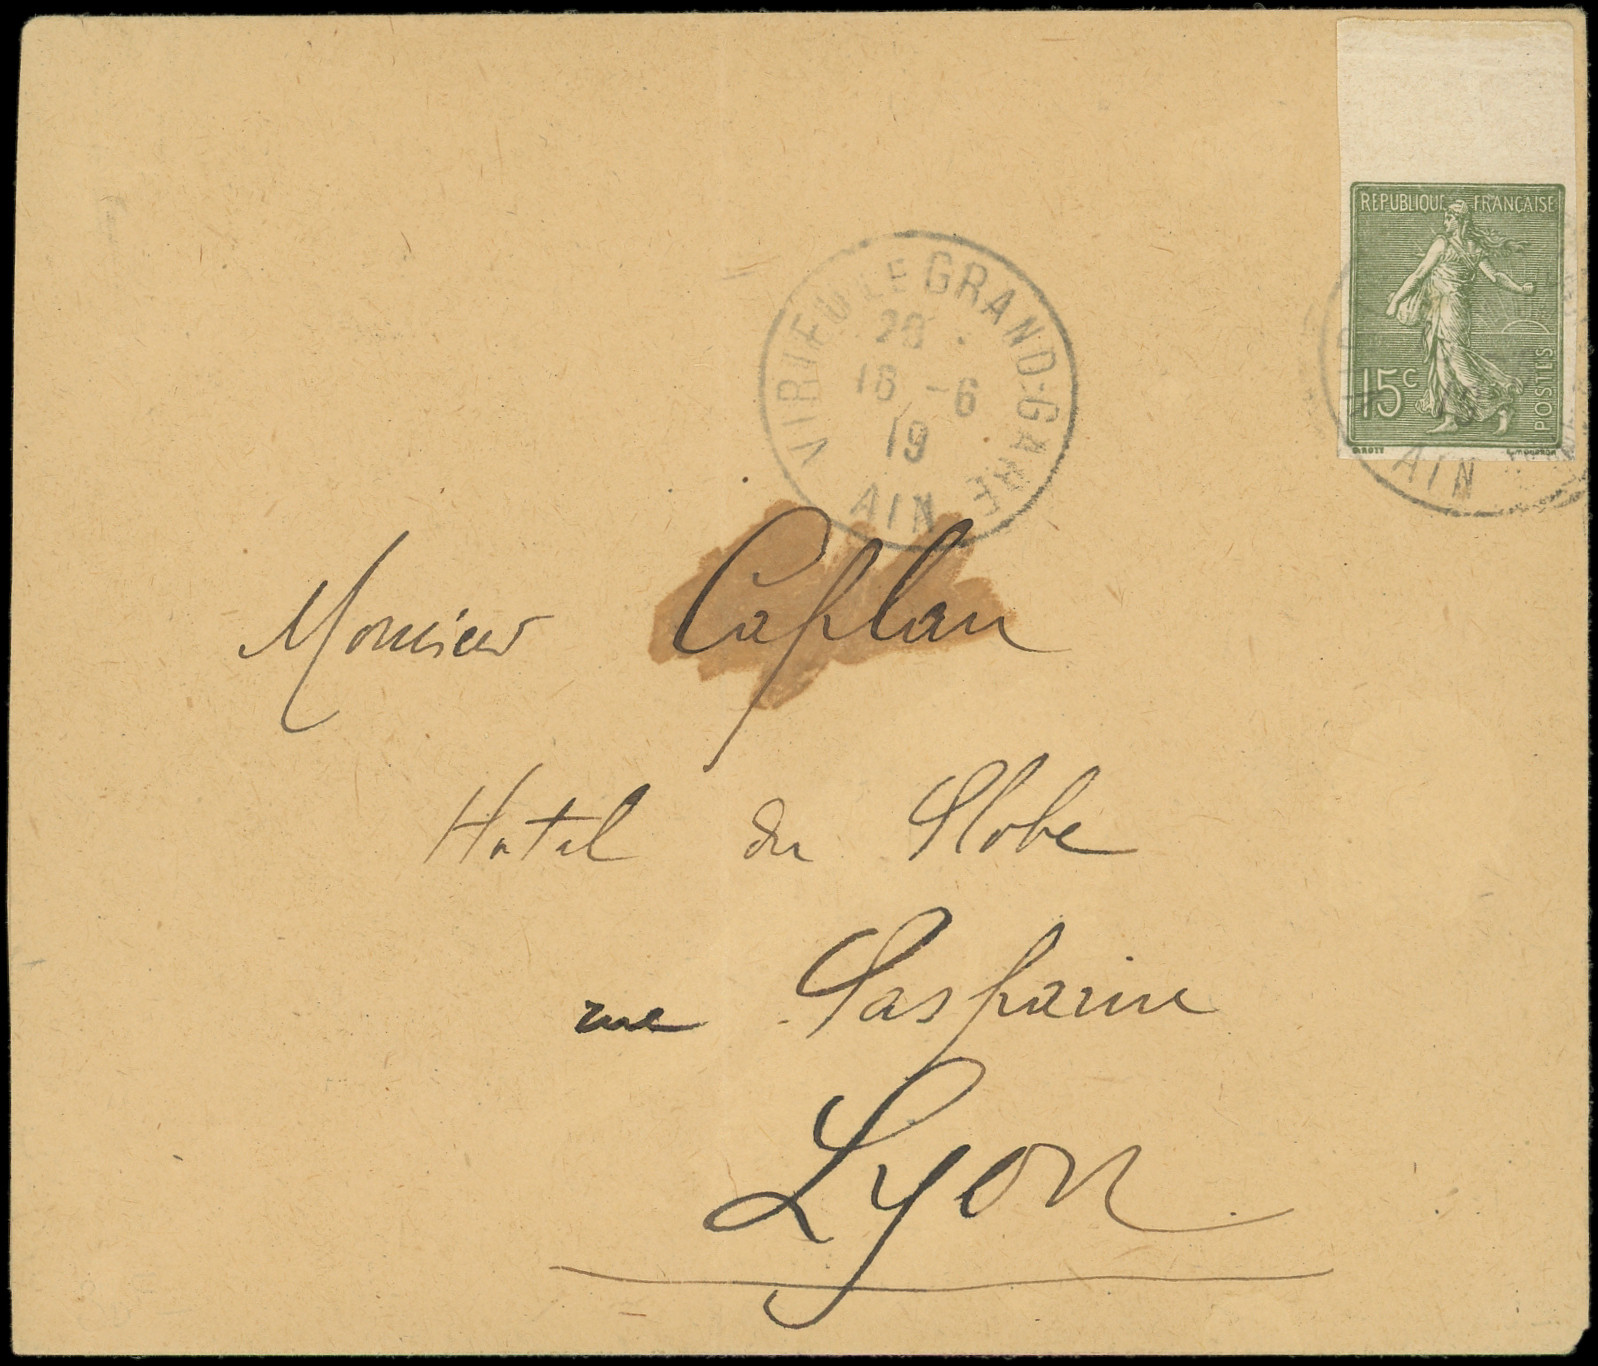 RÉPUBLIQUE FRANÇAISE
15c
POSTES
VIRIEU LE GRAND-GARE
20
16 -6
19
AIN
AIN
Monsieur Caplan
Hotel du Globe
rue Gasparin
Lyon